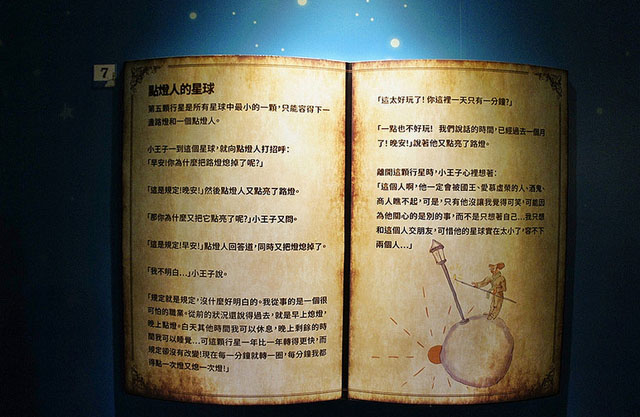 7
點燈人的星球
第五顆行星是所有星球中最小的一顆，只能容得下一
盞路燈和一個點燈人。
小王子一到這個星球，就向點燈人打招呼：
「早安!你為什麼把路燈熄掉了呢?」
「這是規定!晚安!」然後點燈人又點亮了路燈。
「那你為什麼又把它點亮了呢?」小王子又問。
「這是規定!早安!」點燈人回答道，同時又把燈熄掉了。
「我不明白...」小王子說。
「規定就是規定，沒什麼好明白的。我從事的是一個很
可怕的職業。從前的狀況還說得過去，就是早上熄燈，
晚上點燈。白天其他時間我可以休息，晚上剩餘的時
間我可以睡覺...可這顆行星一年比一年轉得更快，而
規定卻沒有改變!現在每一分鐘就轉一圈，每分鐘我都
得點一次燈又熄一次燈!」
「這太好玩了!你這裡一天只有一分鐘?」
「一點也不好玩! 我們說話的時間，已經過去一個月
了!晚安!」說著他又點亮了路燈。
離開這顆行星時，小王子心裡想著：
「這個人啊，他一定會被國王、愛慕虛榮的人、酒鬼、
商人瞧不起，可是，只有他沒讓我覺得可笑，可能因
為他關心的是別的事，而不是只想著自己...我只想
和這個人交朋友，可惜他的星球實在太小了，容不下
兩個人...」